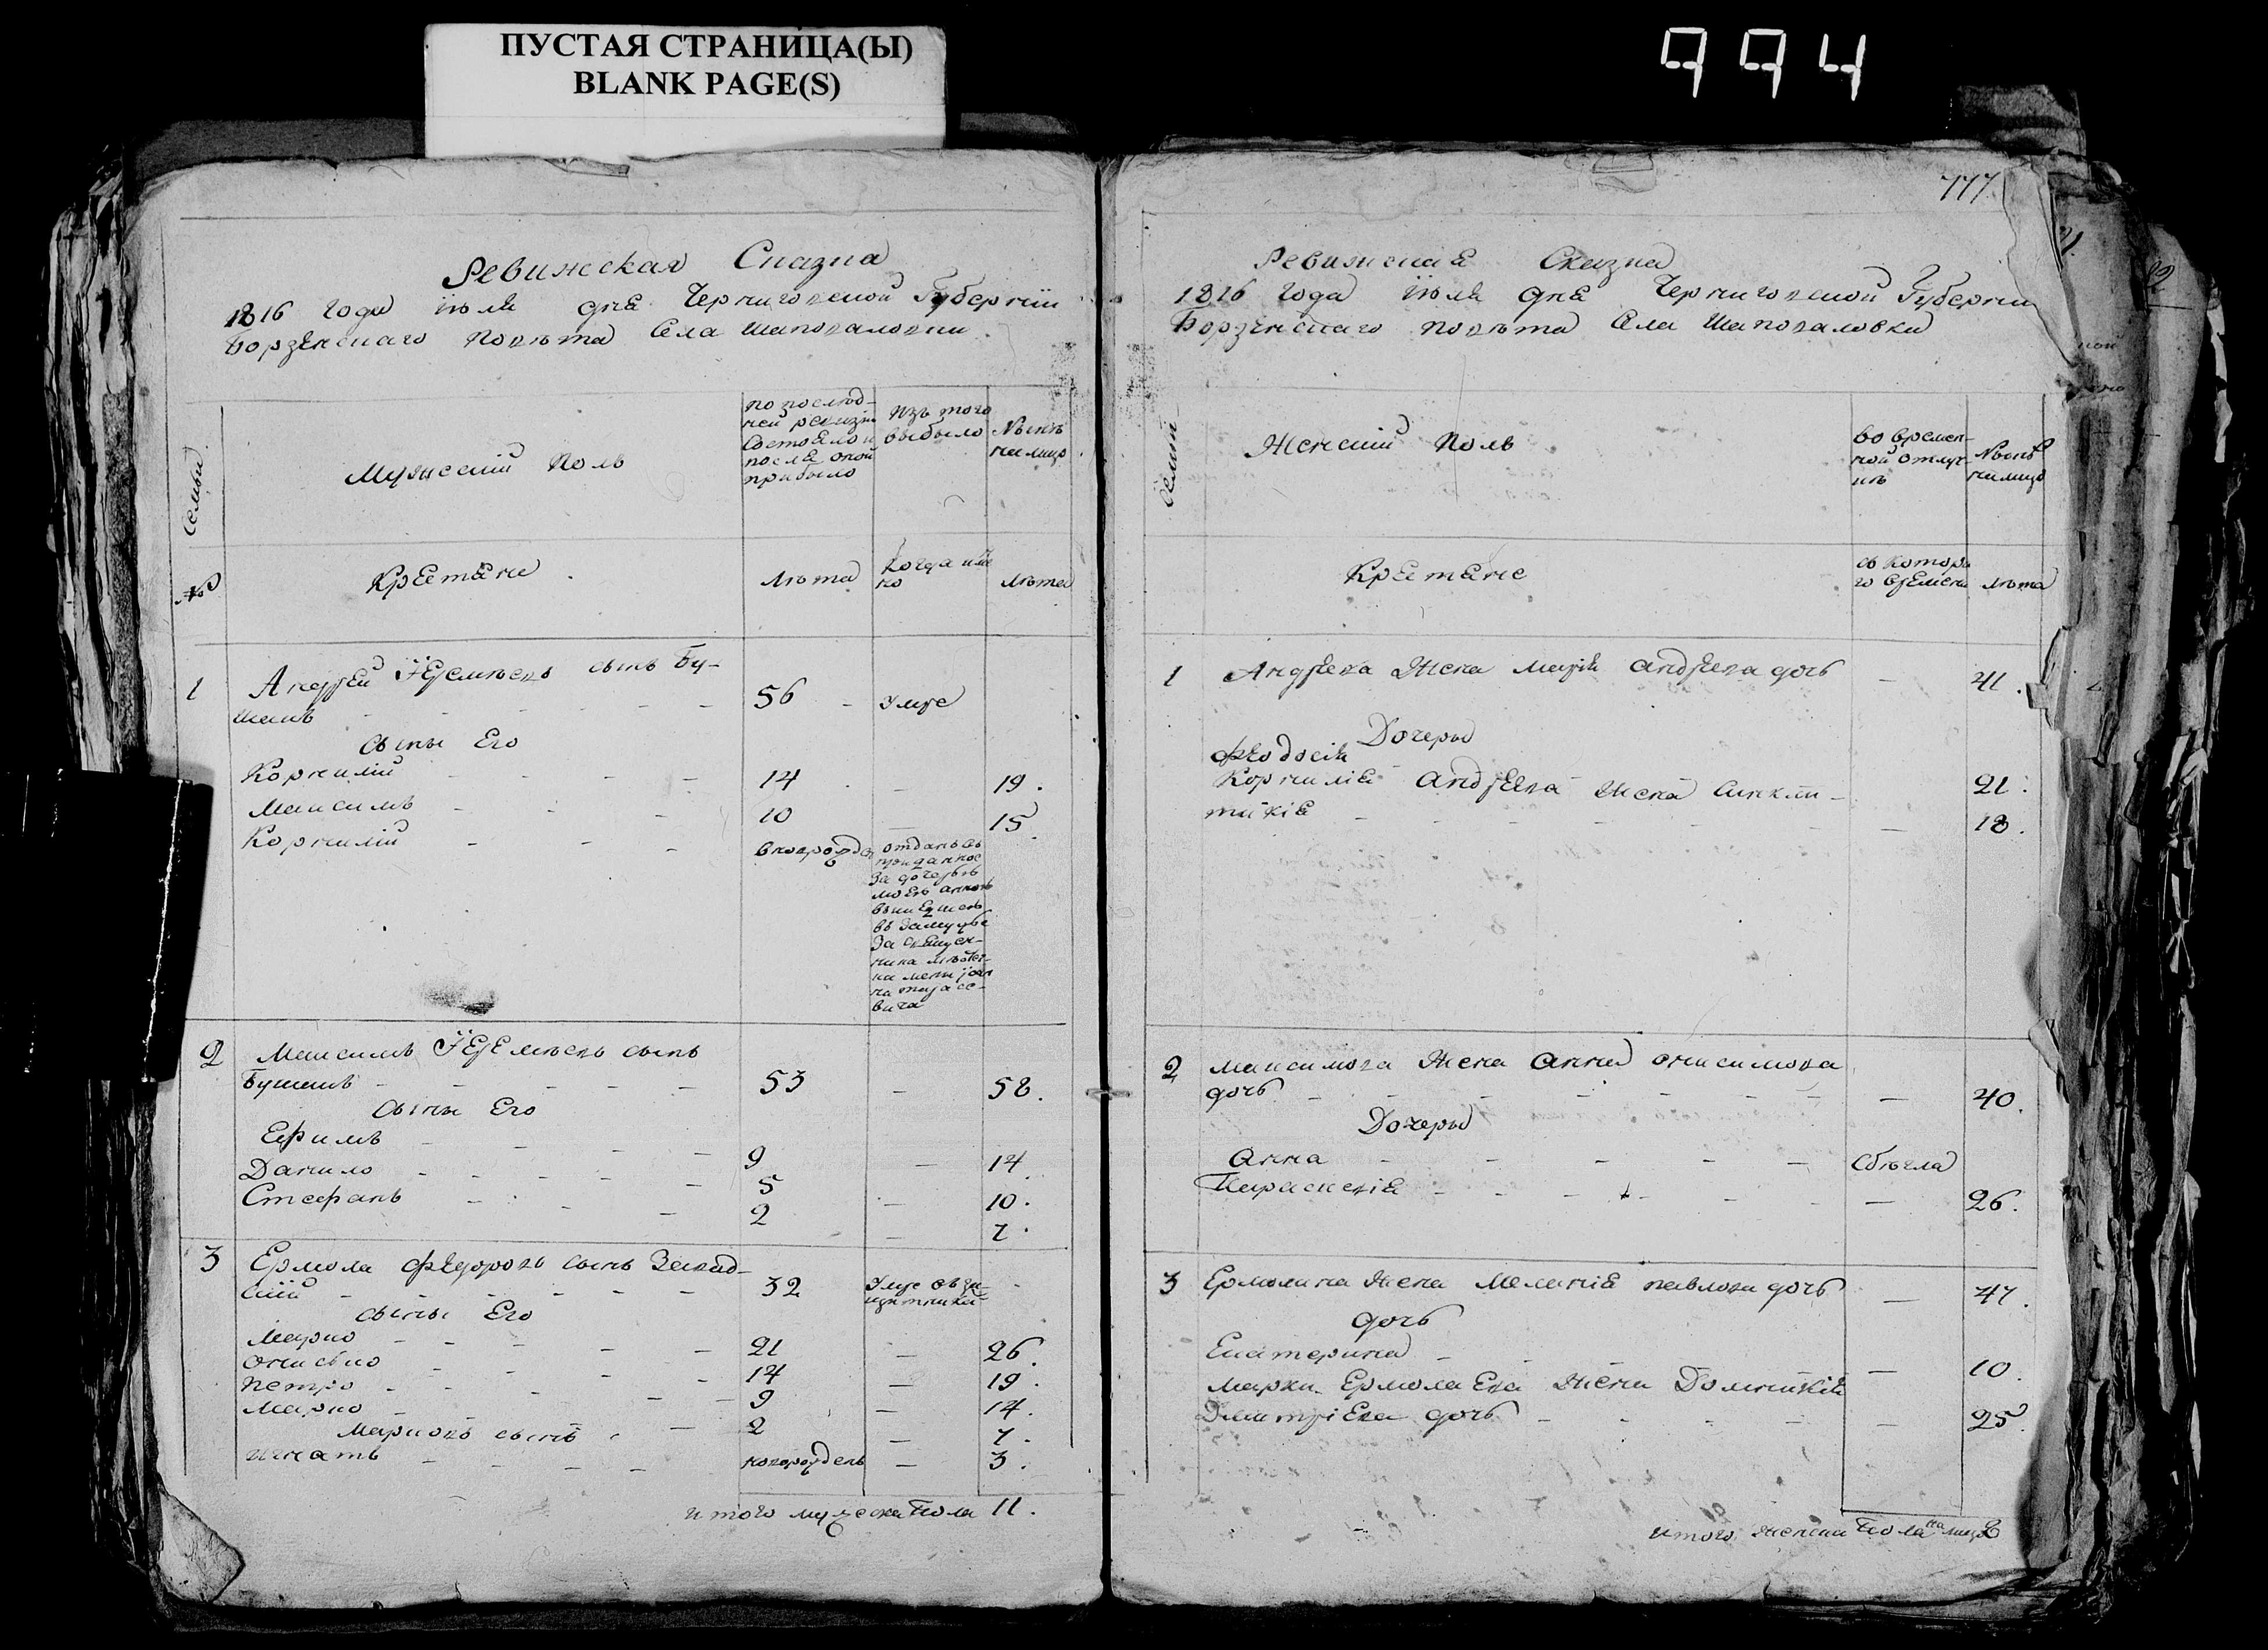 ПУСТАЯ СТРАНИЦА(Ы)
BLANK PAGE(S)
994
Ревижская Сказка
1816 года іюля дня Черниговской Губерніи
Борзенскаго повѣта Села Шаповаловки
Семьи
Мужескій полъ
по послѣд-
ней ревизіи
состояло и
послѣ оной
прибыло
изъ того
выбыло
Нынѣ
на лицо
№
Крестяне
лѣта
Когда имен
но
лѣта
1
Андрей сынъ Бу-
шакъ - - - - - 56 - умре
Сыны Его
Корнилій - - - 14 - 19.
Максимъ - - - 10 - 15.
Корнилій - - -
отданъ въ
приданное
за дочерью
моею
2 Максимъ сынъ
- - - - 53 - 58.
Сыны Его
Ефимъ - - - - 9 - 14.
Данило - - - - 5 - 10.
Стефанъ - - - 2 - 7.
3 Ермола Федоровъ сынъ
- - - - 32 умре
сыны Его
Марко - - - - 21 - 26.
Онисько - - - - 14 - 19.
Петро - - - - 9 - 14.
Марко - - - 2 - 7.
Марковъ сынъ
Игнатъ - - - - новорожденъ - 3.
итого мужеска пола 11.
777
Ревижская Сказка
1816 года іюля дня Черниговской Губерніи
Борзенскаго повѣта Села Шаповаловки
Женскій полъ
во времен-
ной отлуч-
кѣ
Нынѣ
на лицо
Крестяне
съ которо
го времени
лѣта
1 Андреева жена Марія Андреева дочь - 41.
Дочеры
Феодосія
Корнилія Андреева жена Синкли- 21.
тикія - - - - - 18.
2 Максимова жена Анна Онисимова
дочь - - - - - 40.
Дочеры
Анна - - - - - Сбѣгла
Параскевія - - - - - 26.
3 Ермолина жена Меланія Павлова дочь - 47.
дочь
Екатерина - - - 10.
Марка Ермолаева жена Домникія
Дмитріева дочь - - - - 25.
итого женска пола на лицо 8